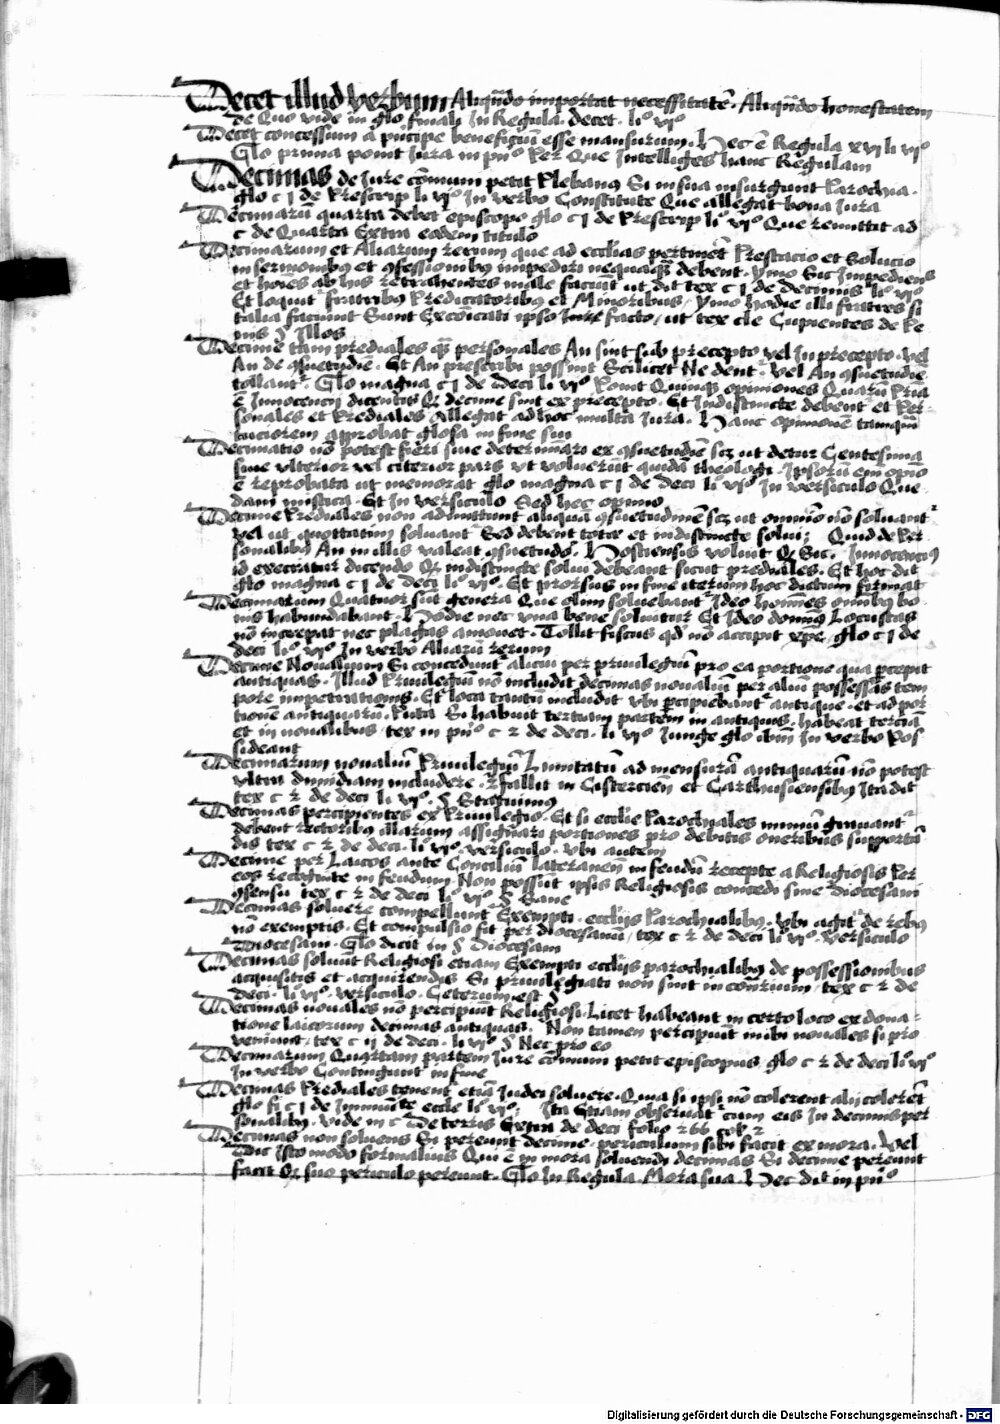 Decet illud verbum Aliqn̄do importat necessitatē. Aliqn̄do honestatem
de Quo vide in glo finali in Regula. decet. li° vi°
Decet concessum a principe beneficiū esse mansurum. Hec ē Regula xvi li vi°
Glo prima ponit Jura in pn° per Que Intelliges hanc Regulam
Decimas de Jure cōmuni petit Plebanus Si in sua insurgunt Parochia.
glo c j de Prescrip li° vi° in verbo Constitute Que allegat bona Jura
Decimarū quarta debet episcopo glo c j de Prescrip li° vi° Que remittit ad
c de Quarta Extra eodem titulo
Decimarum et Aliarum rerum que ad ecclīas pertinēt Prestacio et Solucio
in sermonibus et 9fessionibus impediri nequaquā debent. ymo Sic Impediens
et hoīes ab his retrahentes male faciūt ut dit tex c j de decimis li° vi°
Et loquit fratribus Predicatoribus et Minoribus, ymo hodie illi fratres si
talia faciunt Sunt Excōicati ipso Jure facto, ut tex cle Cupientes de Pe
nis § Illos
Decime tam prediales q̄ personales An sint sub precepto vel in precepto. vel
An de 9suetudīe. Et An prescribi possint Scilicet Ne dent. vel An 9suetudīe
tollant. Glo magna c j de Deci li vi° Ponit Quinq opiniones Quarū Prīa
ē Innocencij dicentis Q decime sint ex precepto. Et Indistincte debent et Per-
sonales et Prediales Allegat ad hoc multa Jura. Hanc opinionē tamquā
tuciorem approbat glosa in fine sui
Decimatio nō potest fieri sine determinari ex 9suetudīe scz ut detur Centesima
sine vlterior vel citerior pars vt voluerint quidā theologi. Ipsorū em opīo
ē reprobata ut memorat glo magna c j de deci li° vi° in versiculo Que
dam mistica. Et in versiculo Sed hec opinio
Decime Prediales non admittunt aliqua 9suetudinē scz ut omnīo nō soluant
vel ut quottatim soluant Sed debent tote et indistincte solui; Quid de Per
sonalibus An in illis valeat 9suetudo. Hostiensis voluit Q Sic. Innocencius
id execratur dicendo Q indistincte solui debeant sicut prediales. Et hoc dit
glo magna c j de deci li° vi°. Et prorsus in fine iterum hoc dictum firmat
Decimarum Quatuor sūt genera Que olim soluebant Ideo homīes omībus bo
nis habundabant. Hodie nec vna bene soluitur Et Ideo domīus Locustas
nō increpat nec plagas amouet. Tollit fiscus qd nō accipit xp̄e, glo c j de
deci li° vi° in verbo Aliarū rerum
Decime Noualium Si concedunt alicui per priuilegiū pro ea portione qua percepit
antiquas. Illud Priuilegiū nō includit decimas noualiū per aliū possessas tem
pore impetrationis. Et loca tantū includit vbi percipiebant antique. et ad por
tionē antiquarū. Puta Si habuit tertiam partem in antiquis. habeat terciā
et in noualibus. tex in pn° c 2 de deci. li vi° Junge glo ibīm in verbo Pos
sideant
Decimarum noualiū Priuilegiū Limitatū ad mensurā antiquarū nō potest
vltra dimidiam includere. Fallit in Cisterciēn et Carthusiensibus Ita dit
tex c 2 de deci li vi°. § Statuimus
Decimas percipientes ex Priuilegio. Et si ecclīe Parochiales nimiū grauant
debent rectoribus illarum assignari portiones pro debitis oneribus supportā
dis tex c 2 de deci. li vi°. versiculo. vbi autem
Decime per Laicos ante Conciliū lateranen̄ in feudū recepte a Religiosis Per
eos recognite in feudum. Non possūt ipsis Religiosis concedi sine diocesani
9sensu tex c 2 de deci li° vi° § Sane
Decimas soluere compellunt Exempti. ecclijs Parochialibus. vbi agit de rebus
nō exemptis. Et compulsio fit per diocesanū, tex c 2 de deci li° vi°. versiculo
Diocesani. Glo dicit in § Diocesani
Decimas soluūt Religiosi etiam Exempti ecclijs parochialibus de possessionibus
acquisitis et acquirendis Si priuilegiati non sint in cōtrarium, tex c 2 de
deci. li° vi°. versiculo. Ceterum est §
Decimas nouales nō percipiūt Religiosi. Licet habeant in certo loco ex dona-
tione laicorum decimas antiquas. Non tamen percipiūt inibi nouales si pro
veniunt, tex c ij de deci. li vi° § Nec pro eo
Decimarum Quartam partem Jure cōmuni petit episcopus, glo c 2 de deci li° vi°
in verbo Contingunt in fine
Decimas Prediales tenent etiā Judei soluere. Quia si ipsi nō colerent alij colerēt
glo fi c j de Immunite eccle li° vi°; Ita Etiam obseruat cum eis in decimis per
sonalibus. vide in c De terris Extra de deci folio 266 col 2
Decimas non soluens Si pereunt decime. periculum sibi facit ex mora. Vel
Dic isto modo formalius Qui ē in mora soluendi decimas Si decime pereunt
facit Q suo periculo pereunt. Glo in Regula. Mora sua. Hec dit in pn°
Digitalisierung gefördert durch die Deutsche Forschungsgemeinschaft - DFG